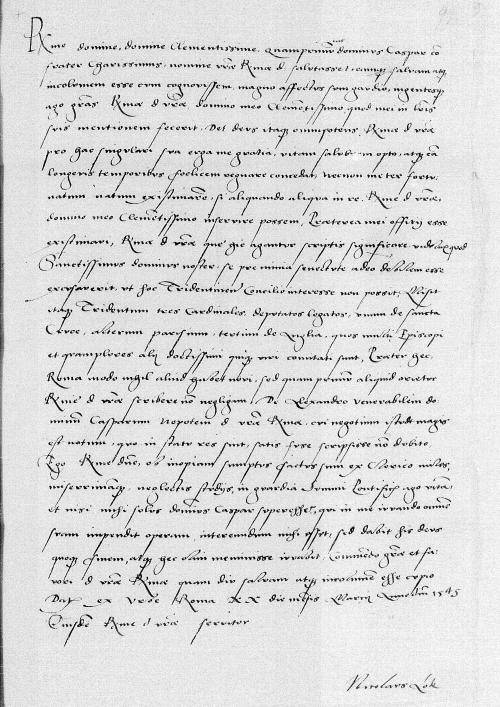 Rme domine, domine Clementissime. Quamprimum dominus Caspar co
frater Charissimus, nomine vrae Rmae d. salutasset, eamq salvam atq
incolumem esse cum cognovissem, magno affectus sum gaudio, ingentesq
ago gras Rmae d vrae domino meo Clemetissimo, quod mei in suis
mentionem fecerit. Det deus itaq omnipotens, Rmae d vrae
pro hac singulari sua erga me gratia, vitam salute opto, atq ea
longevis temporibus foelicem regnare concedat, necnon me ter fortu
natum natum existimare, si aliquando aliqua in re Rme d vrae,
domino meo Clemetissimo inservire possem, Praeterea mei offitij esse
existimavi, Rmae d vrae que hic aguntur scriptis significare, quod
Sanctissimus dominus noster, se pre nimia senectute adeo debilem esse
excusaverit, ut hoc Tridentinum Concilio interesse non possit, Misit
itaq Tridentum tres Cardinales, deputatos legatos, unum de sancta
Cruce, alterum parisium, tertium de Anglia, quos multi Episcopi
et quamplures alij doctissimi quiq viri comitati sunt, Praeter hec
Roma modo nihil aliud habet novi, sed quam primum aliquid
Rme d vrae scribere no negligam. De Alexandro venerabilem do
minum Casparum Nepotem d vrae Rmae, cui negotium istud magis
est notum, quo in statu res sunt, satis scripsisse no dubito,
Ego Rme dne, ob inopiam sumptus factus sum ex Clerico miles,
miserrimusq, neglectis studijs, in guardia Summi Pontificis ago vita,
et nisi mihi solus dominus Caspar superesset, qui in me iuvando omnem
suam impendit operam, intereundum mihi esset, sed dabit his deus
quoq finem, atq hec olim meminisse iuvabit, Commedo grae et fa
vori d vrae Rmae quam diu salvam atq incolumem esse cupio
Dat ex Urbe Roma XX die mesis Marcij Anno dni 1545
Eiusde Rme d vrae servitor
Nicolaus